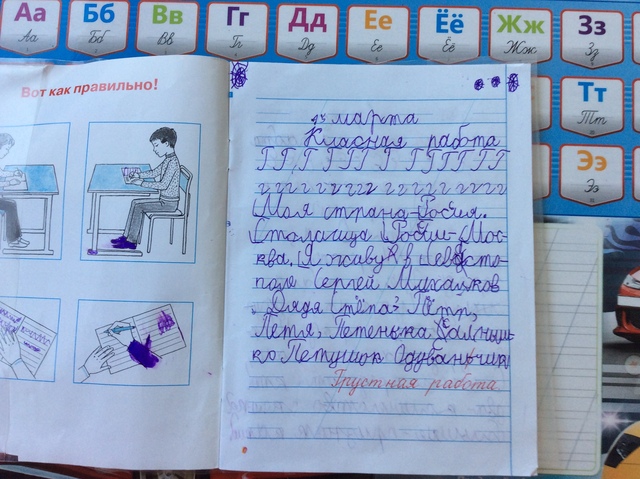 Аа Бб Вв Гг Дд Ее Ёё Жж Зз
Аа Бб Вв Гг Дд Ее Ёё Жж Зз
Тт
Тт
Ээ
Ээ
Вот как правильно!
марта
Класная работа
ГГГГГГГ ГГГГГГ
гггггггггггггггг
Моя страна-Росия.
Сталаица Росии-Мос-
ква. Я живу в Севасто-
поле Сергей Михалков
Дядя Стёпа Пётр,
Петя, Петенька Солныш-
ко Петушок Одуванчик
Грустная работа